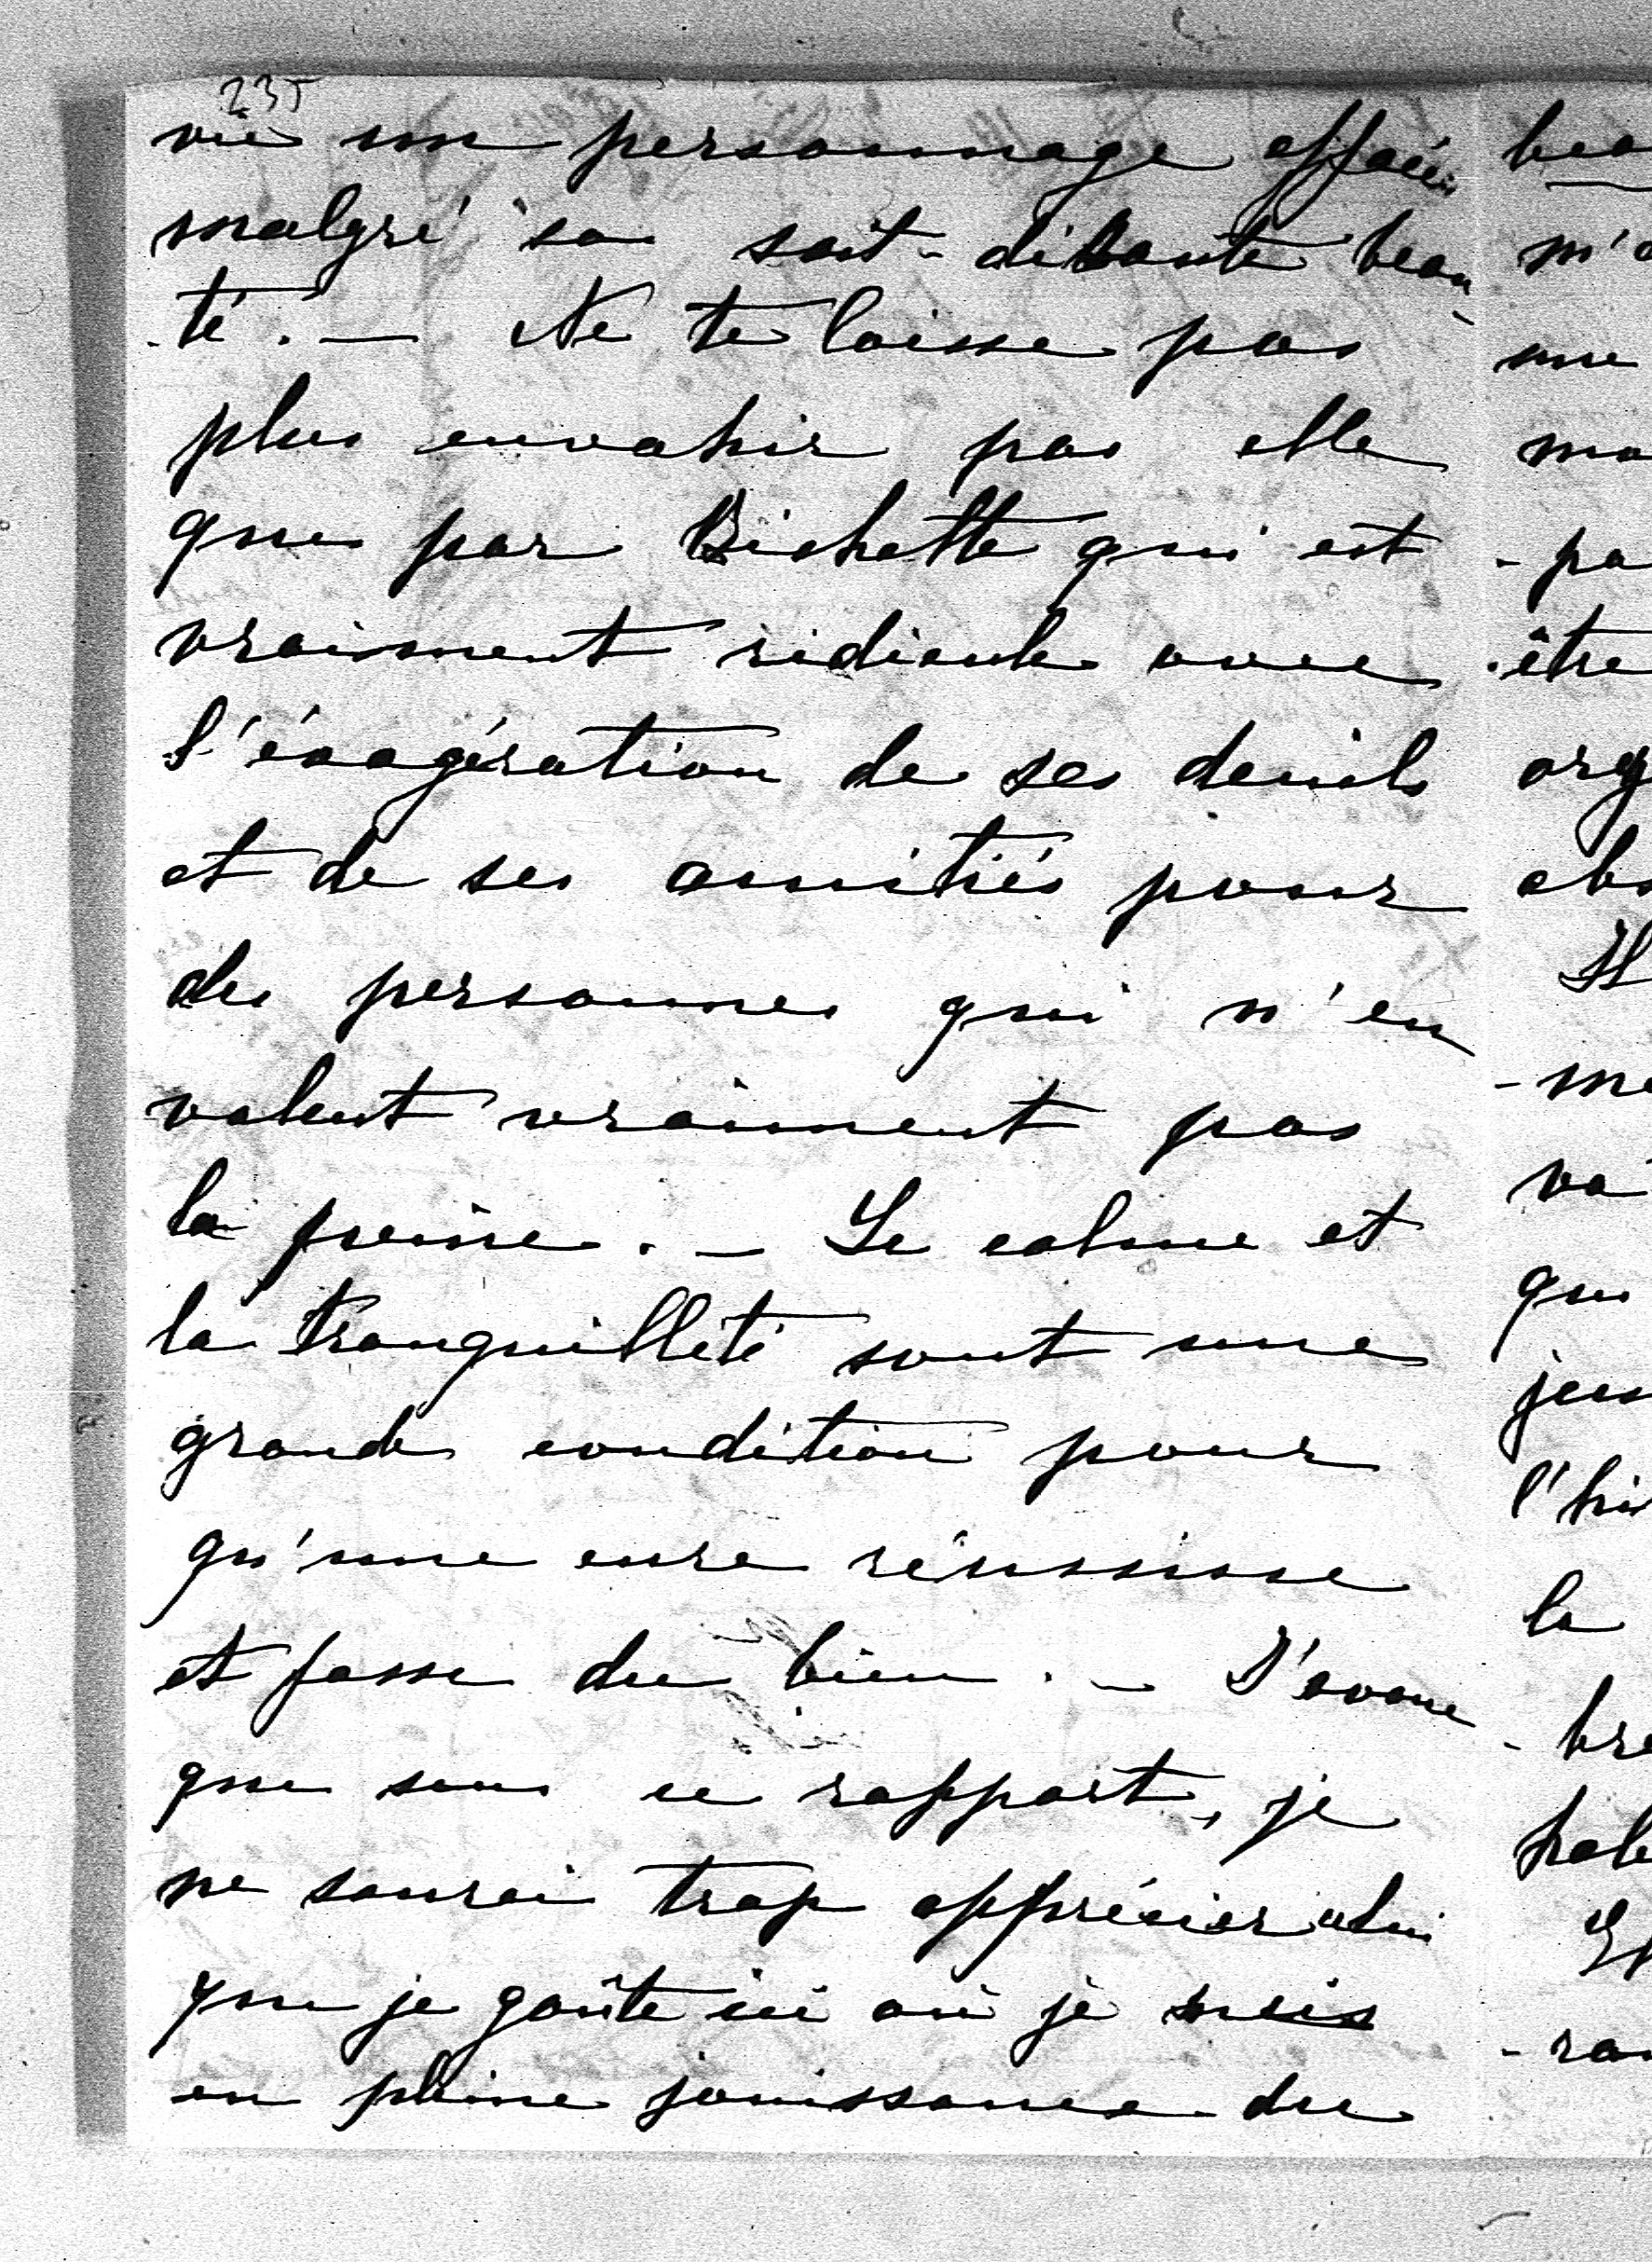 235
vie un personnage effacé
malgré sa soit-disante beau
-té. — Ne te laisse pas
plus envahir par elle
que par Bichette qui est
vraiment ridicule avec
l'éxagération de ses deuils
et de ses amitiés pour
des personnes qui n'en
valent vraiment pas
la peine. — Le calme et
la tranquilleté sont une
grande condition pour
qu'une cure réussisse
et fasse du bien. — J'avoue
que sous ce rapport, je
ne saurai trop apprécier celui
que je goûte ici où je suis
en pleine jouissance du
m'
-pa
être
la